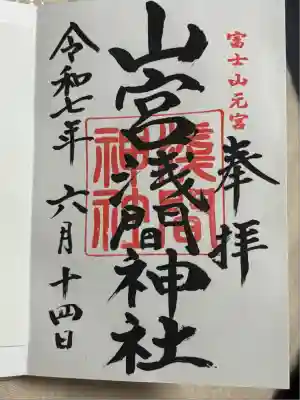 富士山元宮
奉拝
山宮浅間神社
淺間神社
令和七年 六月十四日